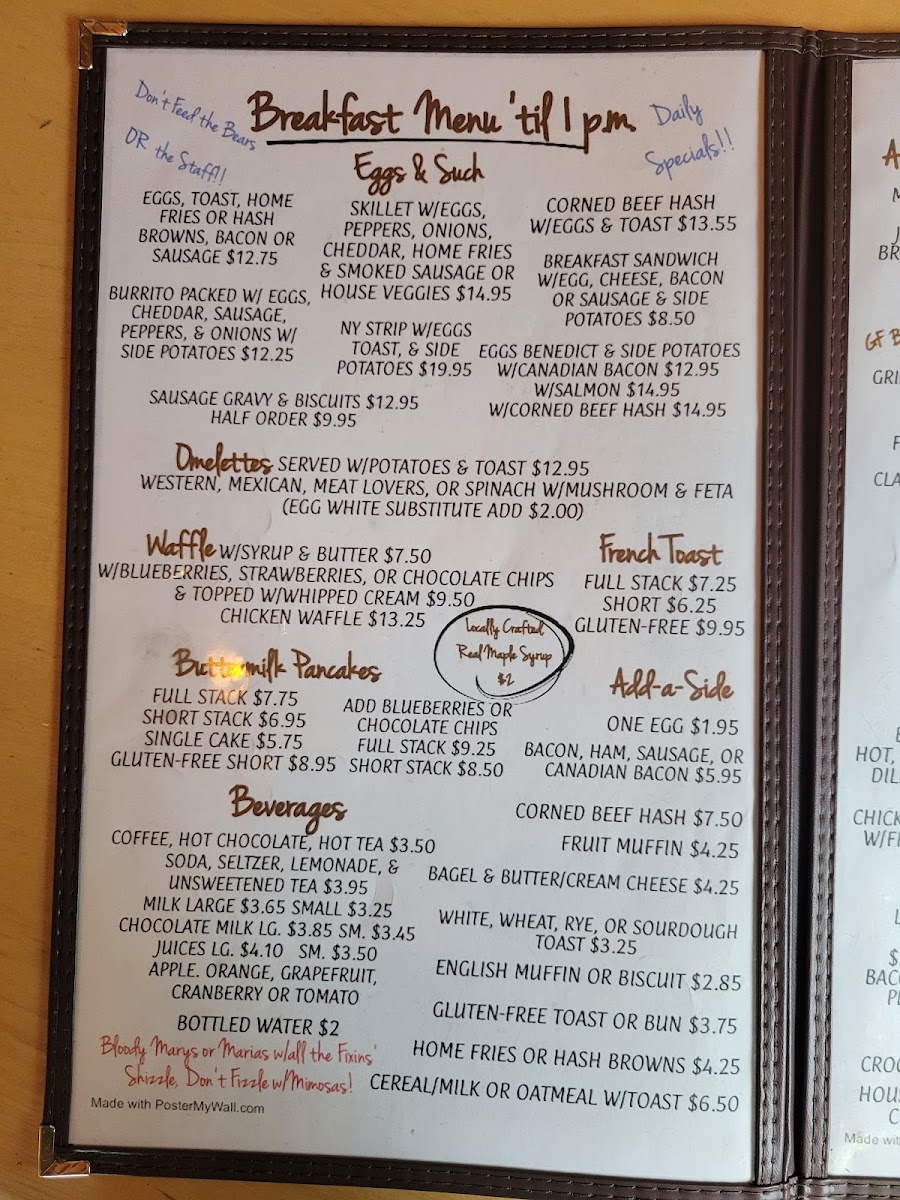 Don't Feed the Bears
OR the Staff!!
Breakfast Menu 'til 1 p.m.
Daily
Specials!!
Eggs & Such
EGGS, TOAST, HOME
FRIES OR HASH
BROWNS, BACON OR
SAUSAGE $12.75
BURRITO PACKED W/ EGGS,
CHEDDAR, SAUSAGE,
PEPPERS, & ONIONS W/
SIDE POTATOES $12.25
SKILLET W/EGGS,
PEPPERS, ONIONS,
CHEDDAR, HOME FRIES
& SMOKED SAUSAGE OR
HOUSE VEGGIES $14.95
NY STRIP W/EGGS
TOAST, & SIDE
POTATOES $19.95
CORNED BEEF HASH
W/EGGS & TOAST $13.55
BREAKFAST SANDWICH
W/EGG, CHEESE, BACON
OR SAUSAGE & SIDE
POTATOES $8.50
EGGS BENEDICT & SIDE POTATOES
W/CANADIAN BACON $12.95
W/SALMON $14.95
W/CORNED BEEF HASH $14.95
SAUSAGE GRAVY & BISCUITS $12.95
HALF ORDER $9.95
Omelettes SERVED W/POTATOES & TOAST $12.95
WESTERN, MEXICAN, MEAT LOVERS, OR SPINACH W/MUSHROOM & FETA
(EGG WHITE SUBSTITUTE ADD $2.00)
Waffle W/SYRUP & BUTTER $7.50
W/BLUEBERRIES, STRAWBERRIES, OR CHOCOLATE CHIPS
& TOPPED W/WHIPPED CREAM $9.50
CHICKEN WAFFLE $13.25
French Toast
FULL STACK $7.25
SHORT $6.25
GLUTEN-FREE $9.95
Locally Crafted
Real Maple Syrup
$2
Buttermilk Pancakes
FULL STACK $7.75
SHORT STACK $6.95
SINGLE CAKE $5.75
GLUTEN-FREE SHORT $8.95
ADD BLUEBERRIES OR
CHOCOLATE CHIPS
FULL STACK $9.25
SHORT STACK $8.50
Add-a-Side
ONE EGG $1.95
BACON, HAM, SAUSAGE, OR
CANADIAN BACON $5.95
CORNED BEEF HASH $7.50
FRUIT MUFFIN $4.25
BAGEL & BUTTER/CREAM CHEESE $4.25
WHITE, WHEAT, RYE, OR SOURDOUGH
TOAST $3.25
ENGLISH MUFFIN OR BISCUIT $2.85
GLUTEN-FREE TOAST OR BUN $3.75
HOME FRIES OR HASH BROWNS $4.25
CEREAL/MILK OR OATMEAL W/TOAST $6.50
Beverages
COFFEE, HOT CHOCOLATE, HOT TEA $3.50
SODA, SELTZER, LEMONADE, &
UNSWEETENED TEA $3.95
MILK LARGE $3.65 SMALL $3.25
CHOCOLATE MILK LG. $3.85 SM. $3.45
JUICES LG. $4.10 SM. $3.50
APPLE. ORANGE, GRAPEFRUIT,
CRANBERRY OR TOMATO
BOTTLED WATER $2
Bloody Marys or Marias w/all the Fixins'
Shizzle, Don't Fizzle w/Mimosas!
Made with PosterMyWall.com
GF
HOT,
Made